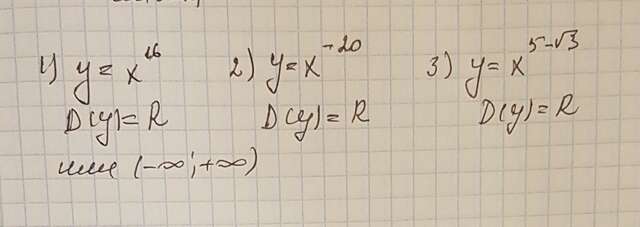 1) y = x^16 2) y = x^-20 3) y = x^5-√3
D(y) = R D(y) = R D(y) = R
или (-∞; +∞)